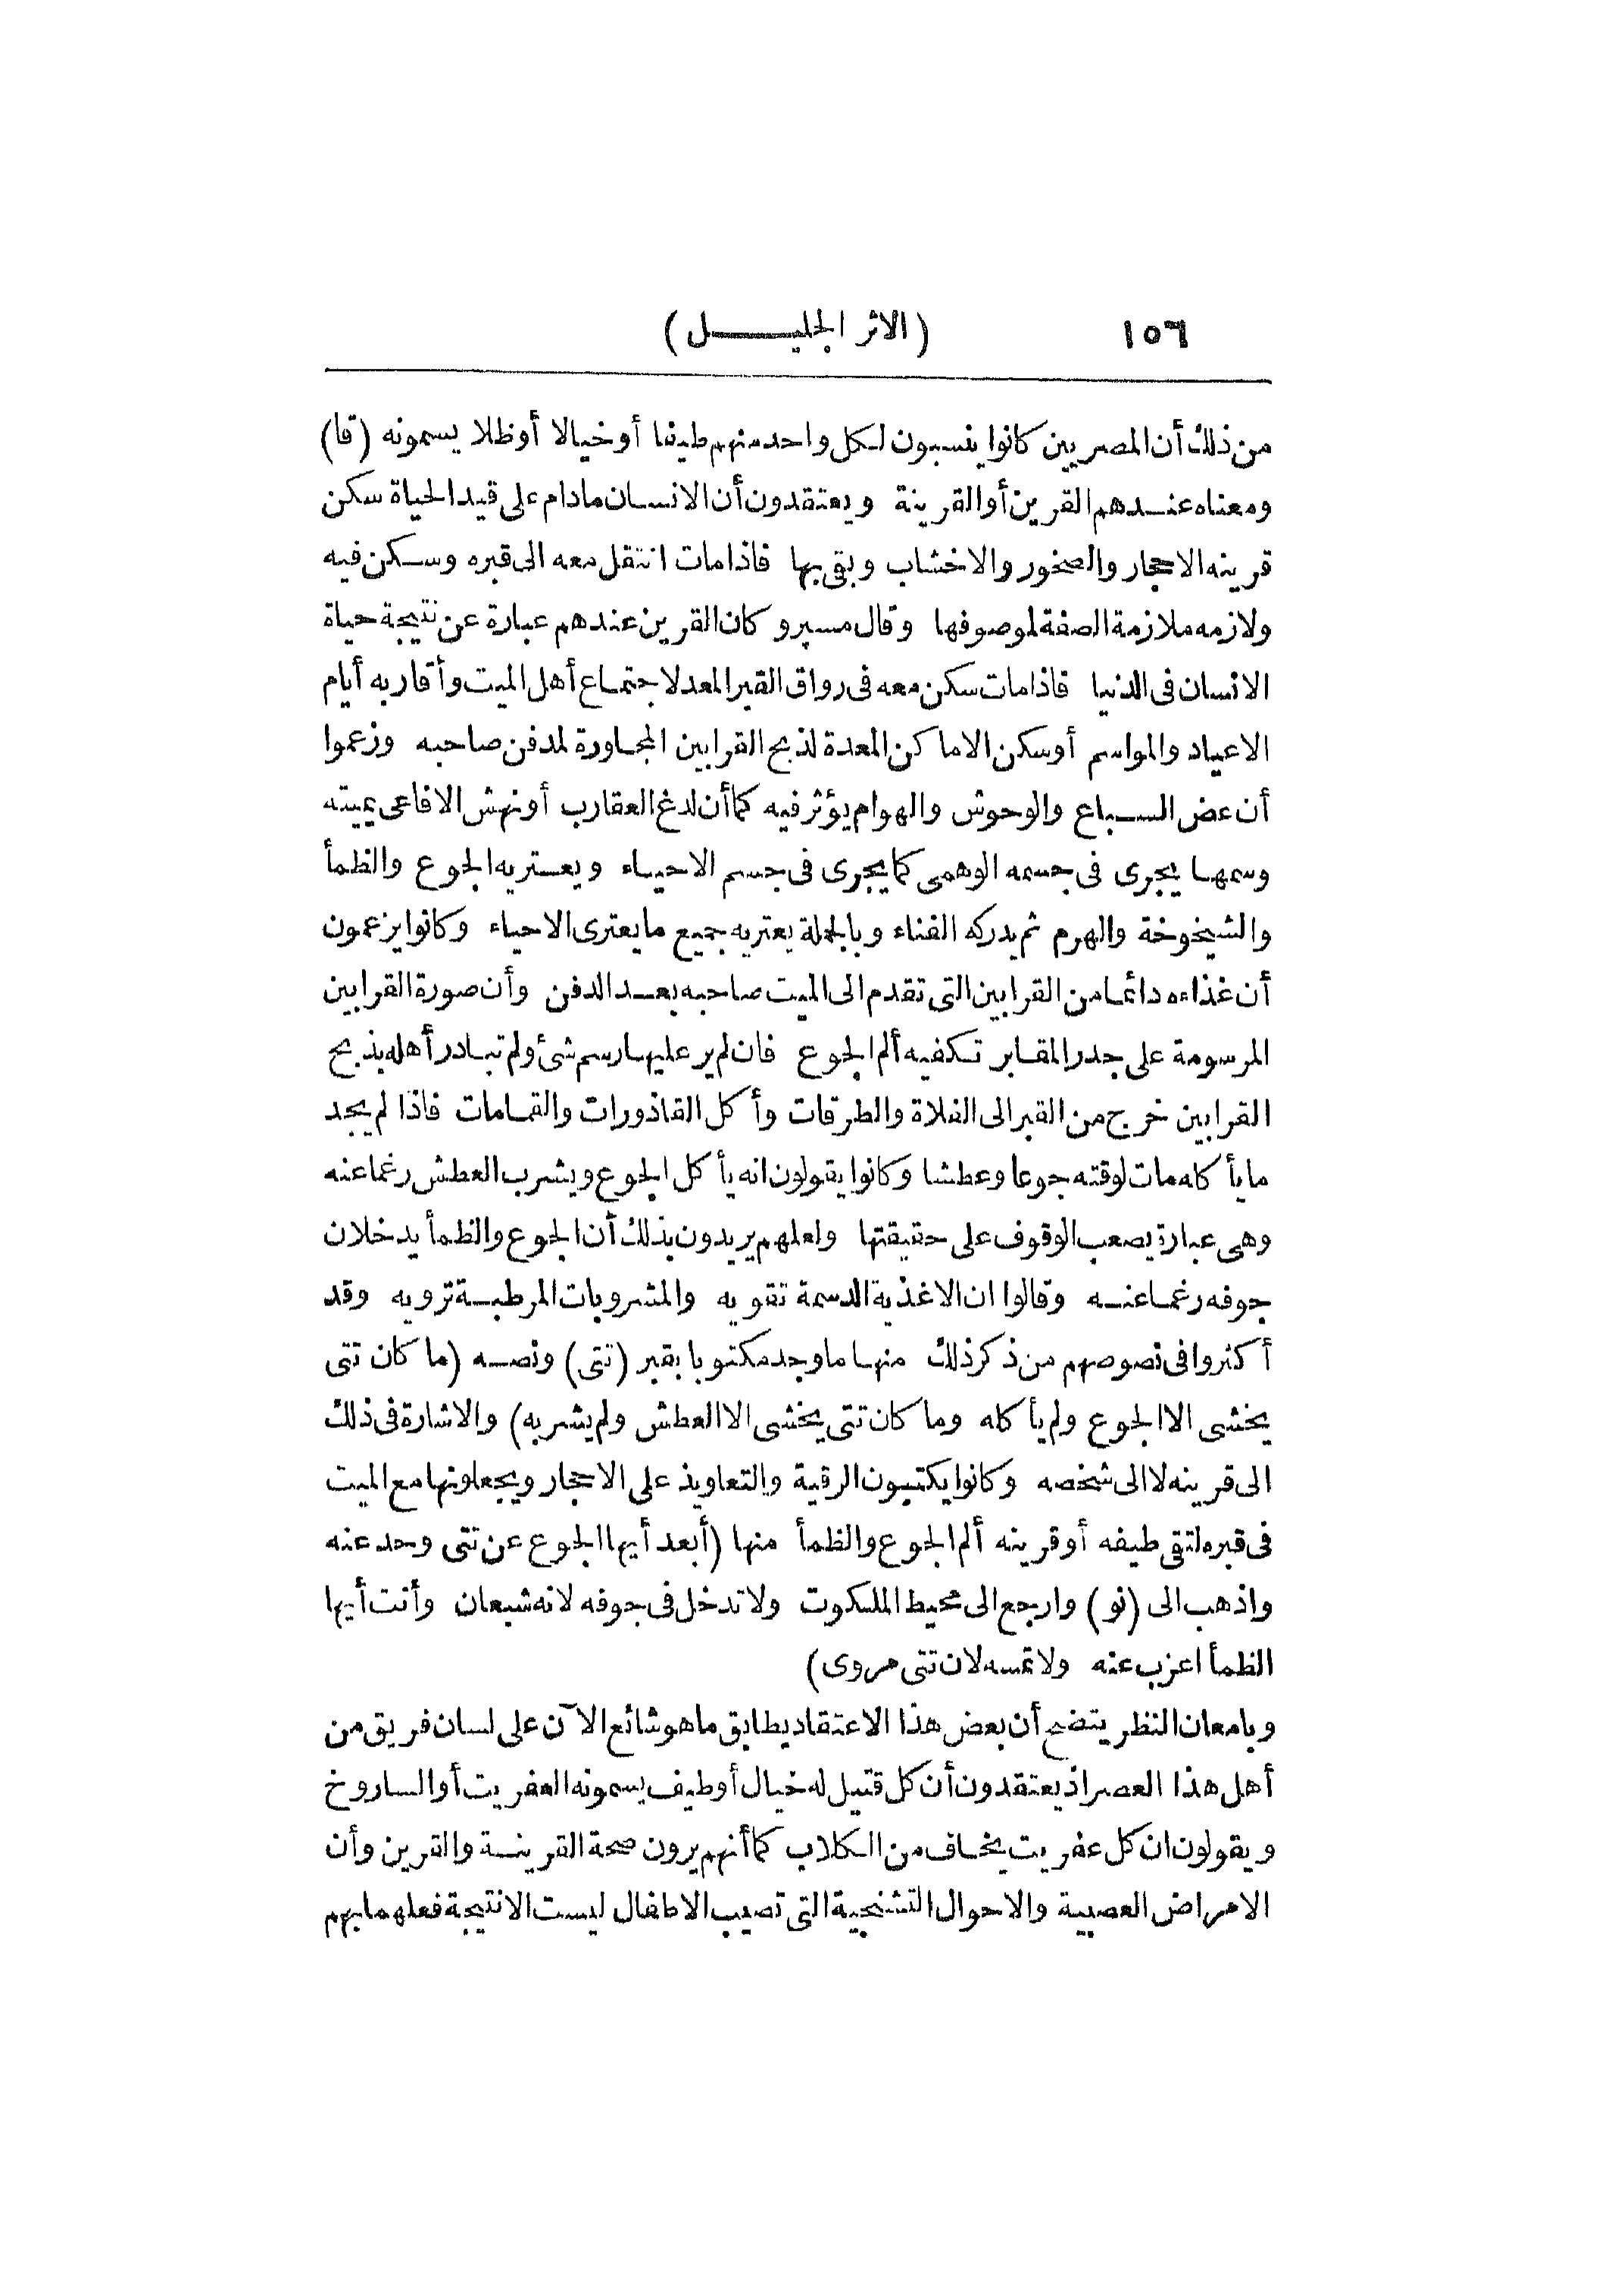 ١٥٦ (الاثر الجليل)
من ذلك أن المصريين كانوا ينسبون لكل واحد منهم طيفا أو خيالا أو ظلا يسمونه (قا)
ومعناه عندهم القرين أو القرينة ويعتقدون أن الانسان مادام على قيد الحياة سكن
قرينه الاحجار والصخور والاخشاب وبقى بها فاذا مات انتقل معه الى قبره وسكن فيه
ولازمه ملازمة الصفة لموصوفها وقال مسپرو كان القرين عندهم عبارة عن نتيجة حياة
الانسان فى الدنيا فاذا مات سكن معه فى رواق القبر المعد لاجتماع أهل الميت وأقاربه أيام
الاعياد والمواسم أو سكن الاماكن المعدة لذبح القرابين المجاورة لمدفن صاحبه وزعموا
أن عض السباع والوحوش والهوام يؤثر فيه كما أن لدغ العقارب أو نهش الافاعى يميته
وسمها يجرى فى جسمه الوهمى كما يجرى فى جسم الاحياء ويعتريه الجوع والظمأ
والشيخوخة والهرم ثم يدركه الفناء وبالجملة يعتريه جميع ما يعترى الاحياء وكانوا يزعمون
أن غذاءه دائما من القرابين التى تقدم الى الميت صاحبه بعد الدفن وأن صورة القرابين
المرسومة على جدر المقابر تكفيه ألم الجوع فان لم ير عليها رسم شئ ولم تبادر أهله بذبح
القرابين خرج من القبر الى الفلاة والطرقات وأكل القاذورات والقمامات فاذا لم يجد
ما يأكله مات لوقته جوعا وعطشا وكانوا يقولون انه يأكل الجوع ويشرب العطش رغما عنه
وهى عبارة يصعب الوقوف على حقيقتها ولعلهم يريدون بذلك أن الجوع والظمأ يدخلان
جوفه رغما عنه وقالوا ان الاغذية الدسمة تقويه والمشروبات المرطبة ترويه وقد
أكثروا فى نصوصهم من ذكر ذلك منها ما وجد مكتوبا بقبر (تتى) ونصه (ما كان تتى
يخشى الا الجوع ولم يأكله وما كان تتى يخشى الا العطش ولم يشربه) والاشارة فى ذلك
الى قرينه لا الى شخصه وكانوا يكتبون الرقية والتعاويذ على الاحجار ويجعلونها مع الميت
فى قبره لتقى طيفه أو قرينه ألم الجوع والظمأ منها (أبعد أيها الجوع عن تتى وحد عنه
واذهب الى (نو) وارجع الى محيط الملكوت ولا تدخل فى جوفه لانه شبعان وأنت أيها
الظمأ اعزب عنه ولا تمسه لان تتى مروى)
وبامعان النظر يتضح أن بعض هذا الاعتقاد يطابق ما هو شائع الآن على لسان فريق من
أهل هذا العصر اذ يعتقدون أن كل قتيل له خيال أو طيف يسمونه العفريت أو الساروخ
ويقولون ان كل عفريت يخاف من الكلاب كما أنهم يرون صحة القرينة والقرين وأن
الامراض العصبية والاحوال التشنجية التى تصيب الاطفال ليست الا نتيجة فعلهما بهم